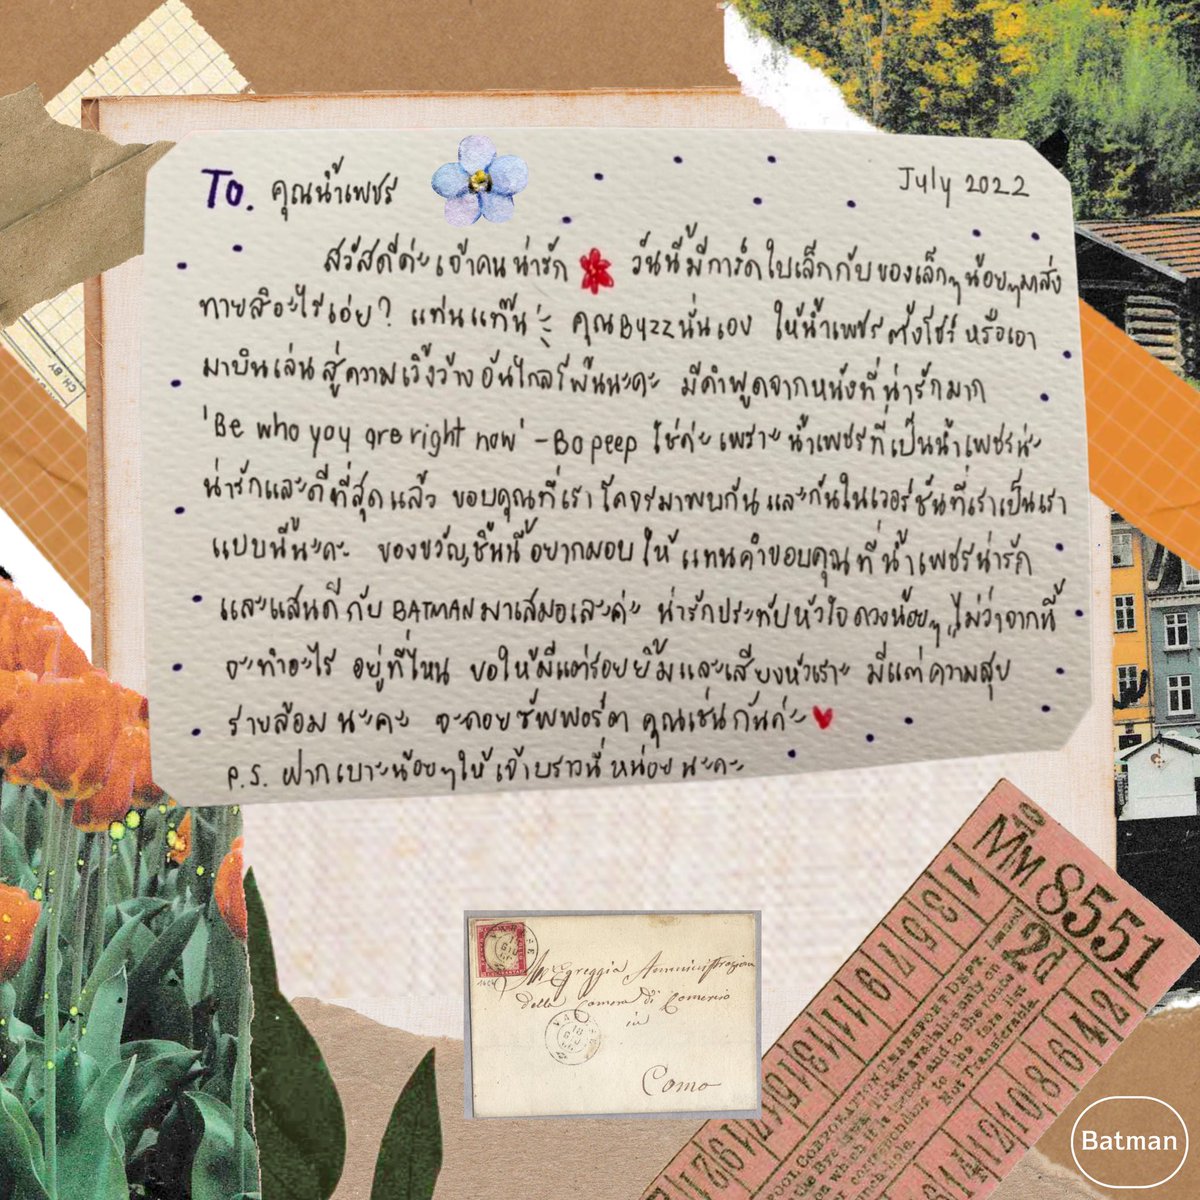 TO. คุณน้ำเพชร
July 2022
สวัสดีค่ะเจ้าคนน่ารัก วันนี้มีการ์ดใบเล็กกับของเล็กๆน้อยๆมาส่ง
ทายสิอะไรเอ่ย? แท่นแท๊น คุณBuzzนั่นเอง ให้น้ำเพชรตั้งโชว์ หรือเอา
มาบินเล่นสู่ความเวิ้งว้างอันไกลโพ้นนะคะ มีคำพูดจากหนังที่น่ารักมาก
'Be who you are right now' - Bo peep ใช่ค่ะ เพราะน้ำเพชรที่เป็นน้ำเพชรน่ะ
น่ารักและดีที่สุดแล้ว ขอบคุณที่เราโคจรมาพบกันและกันในเวอร์ชันที่เราเป็นเรา
แบบนี้นะคะ ของขวัญชิ้นนี้อยากมอบให้แทนคำขอบคุณที่น้ำเพชรน่ารัก
และแสนดีกับ BATMAN มาเสมอเลยค่ะ น่ารักประทับหัวใจดวงน้อยๆ ไม่ว่าจากนี้
จะทำอะไร อยู่ที่ไหน ขอให้มีแต่รอยยิ้มและเสียงหัวเราะ มีแต่ความสุข
รายล้อมนะคะ จะคอยซัพพอร์ตคุณเช่นกันค่ะ
P.S. ฝากเบาะน้อยๆให้เจ้าบราวนี่หน่อยนะคะ
10
Mm 8551
2d
1 3 5 7 9 11 13
2 4 6 8 10 12 14
POOL CORPORATION TRANSPORT DEPT.
Ticket available only on
Not Transferable
della Camera di Comercio
in
Como
Batman